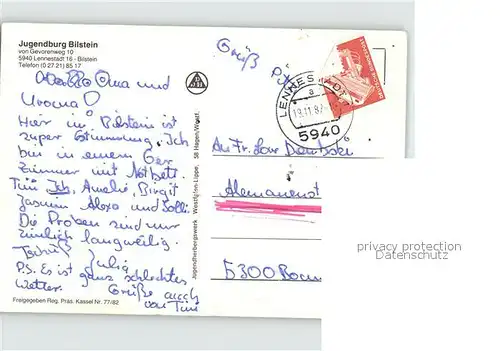 Jugendburg Bilstein
von Gevorenweg 10
5940 Lennestadt 16 - Bilstein
Telefon (0 27 21) 85 17
Oma und
Uroma
Hier in Bilstein ist
super Stimmung. Ich
bin in einem 6er
Zimmer mit Notbett.
Tini Ich, Amelie, Birgit
Jasmin Alexa und
Die Proben sind nur
ziemlich langweilig.
Tschüß Julia
P.S. Es ist ganz schlechtes
Wetter. Grüße auch
von Tini
Freigegeben Reg. Präs. Kassel Nr. 77/82
Jugendherbergswerk · Westf./Inn-Lippe, 58 Hagen/Westf.
Grüß
LENNESTADT
a
19.11.87
5940
An Fr.
5300 Bonn
privacy protection
Datenschutz